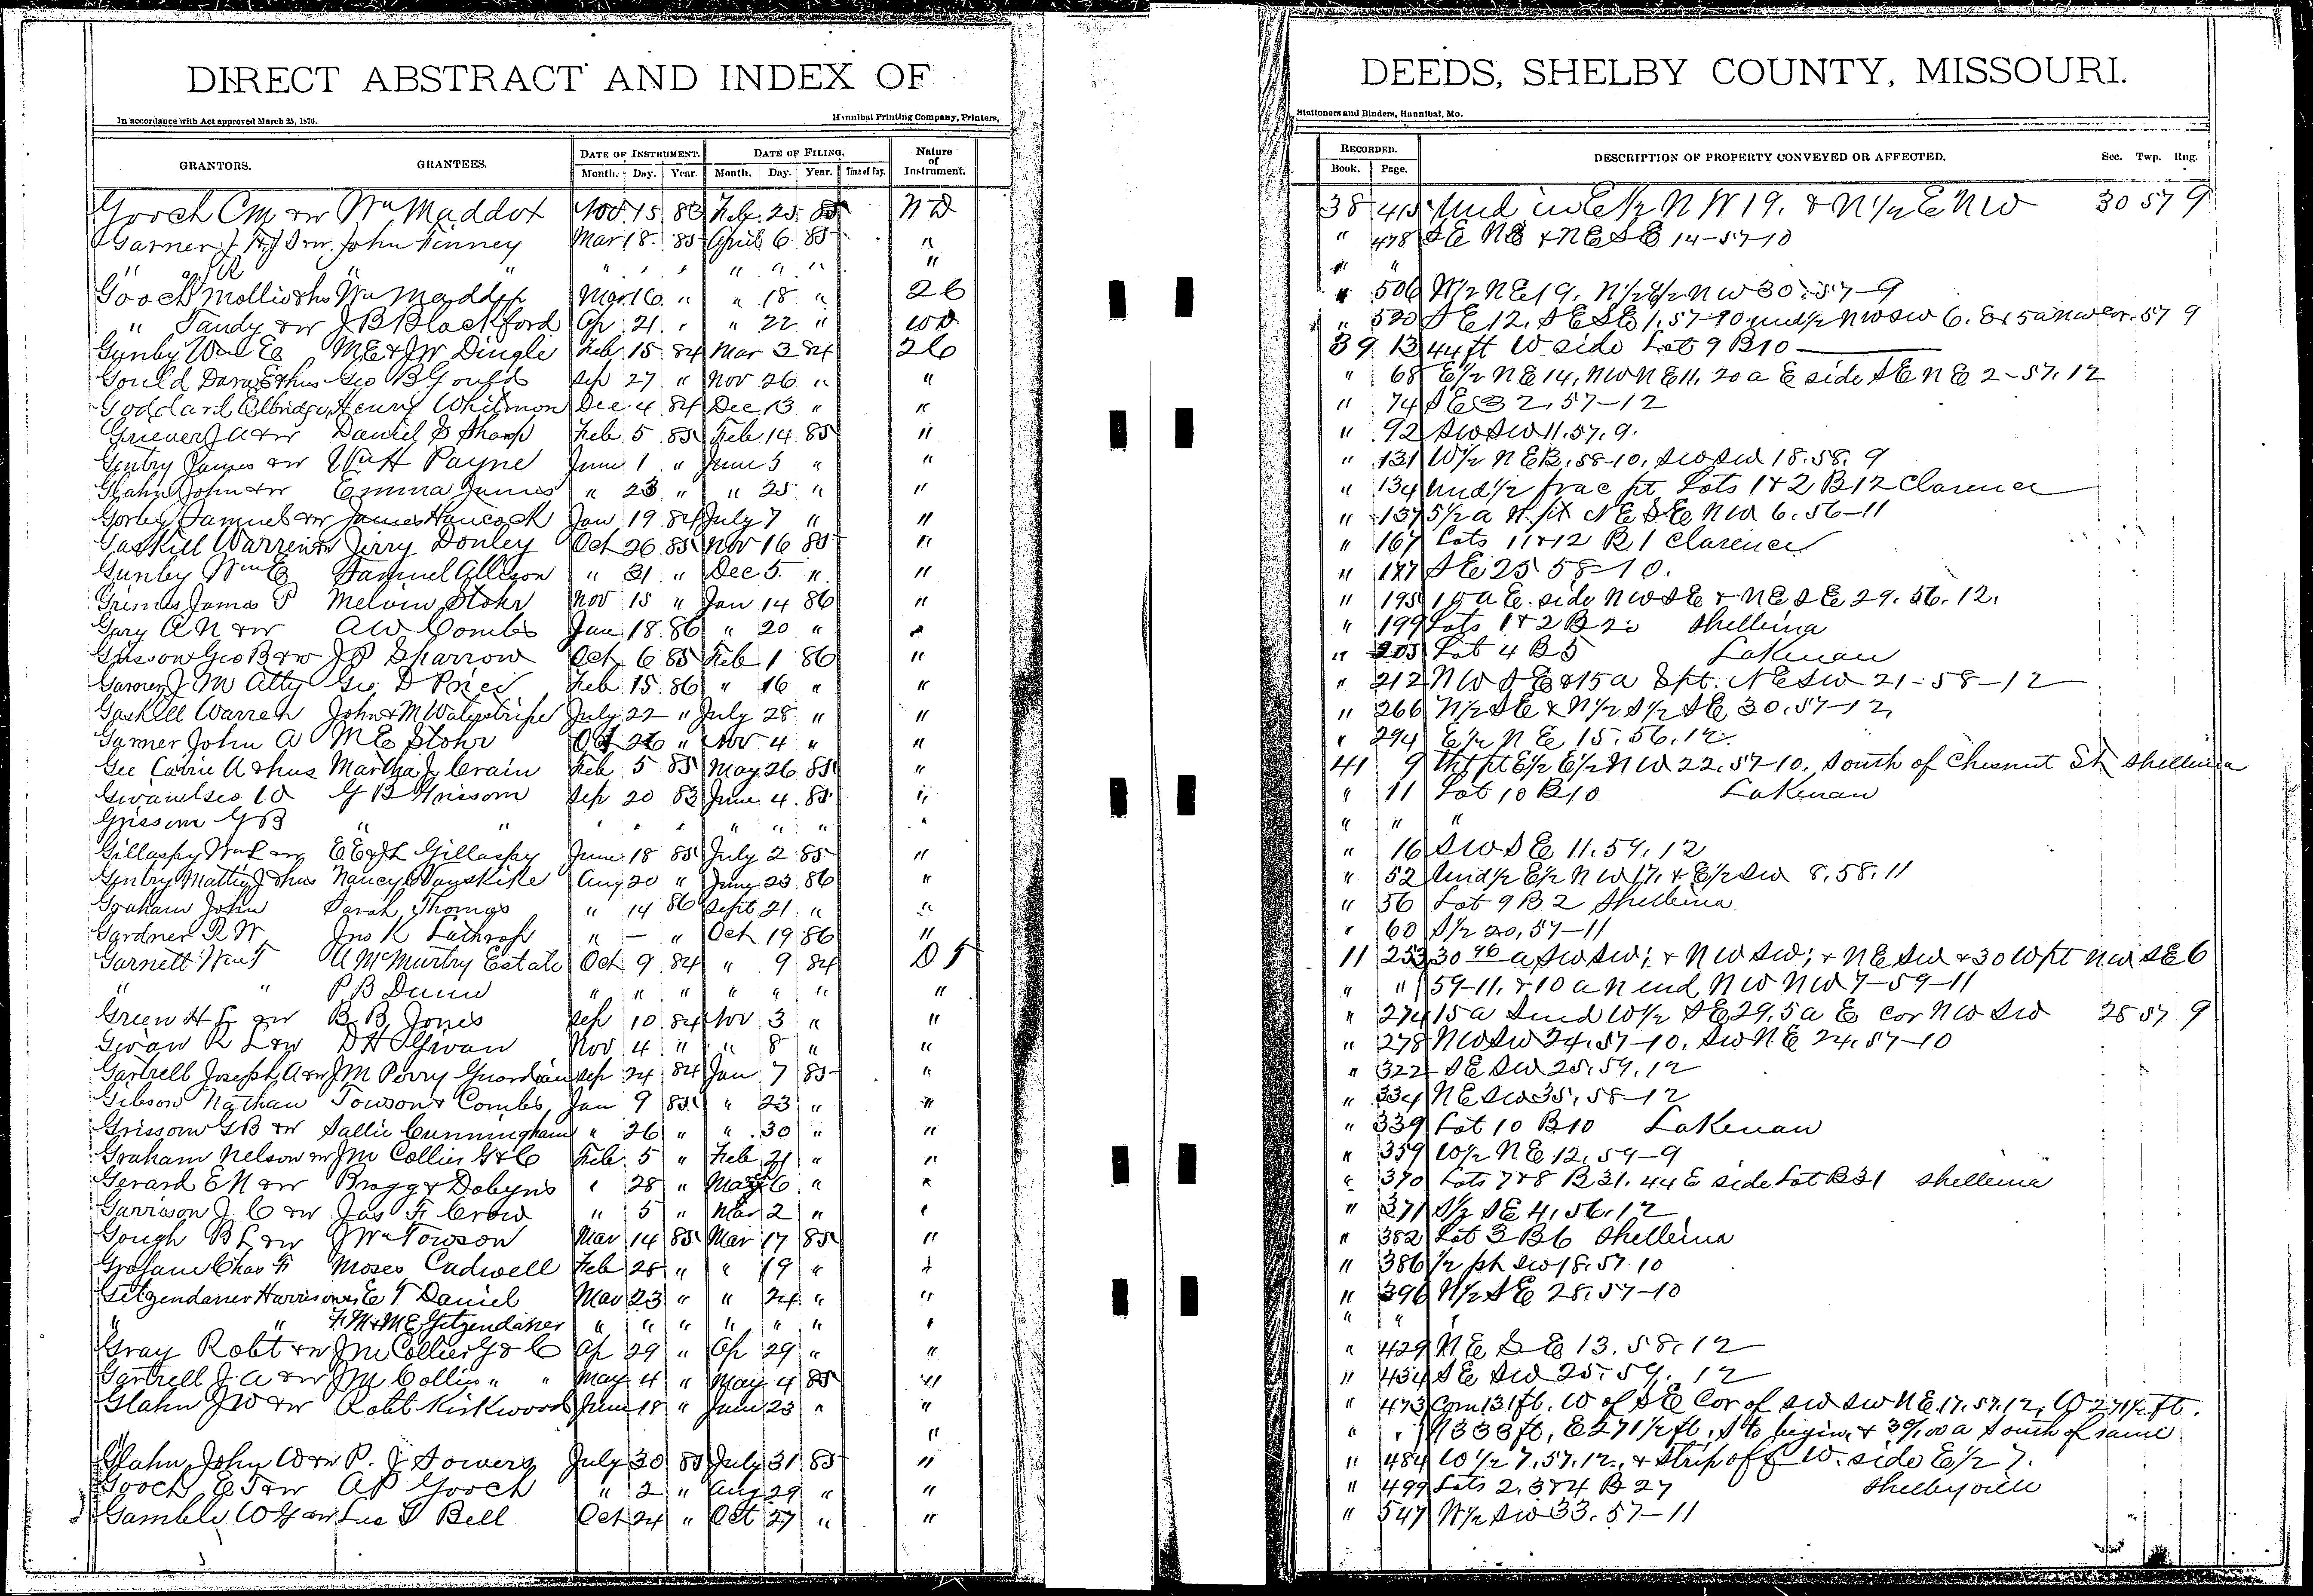 DIRECT ABSTRACT AND INDEX OF DEEDS, SHELBY COUNTY, MISSOURI.
In accordance with Act approved March 25, 1870. Hannibal Printing Company, Printers, Stationers and Binders, Hannibal, Mo.
GRANTORS. GRANTEES. DATE OF INSTRUMENT. Month. Day. Year. DATE OF FILING. Month. Day. Year. Time of Day. Nature of Instrument. RECORDED. Book. Page. DESCRIPTION OF PROPERTY CONVEYED OR AFFECTED. Sec. Twp. Rng.
Gooch CM & w Wm Maddox Nov 15 83 Feb 25 85 WD 38 415 Und E½ NW 19. & N½ E NW 30 57 9
Garner John Finney Mar 18 85 April 6 85 " " 478 SE NE & NE SE 14-57-10
" " " " " " " " " " " "
Gooch Mollie & hus Wm Maddox Mar 16 " " 18 " 26 " 506 W½ NE 19. N½ E½ NW 30-57-9
" Tandy & w J B Blackford Ap 21 " " 22 " WD " 520 SE 12. SE SE 1. 57-10 und½ NW SW 6. 57 9
Gunby Wm E M E & J W Dingle Feb 15 84 Mar 3 84 26 39 13 44 ft W side Lot 9 B10
Gould & hus Geo B Gould Sep 27 " Nov 26 " " " 68 E½ NE 14, NW NE 11, 20 a E side SE NE 2-57.12
Goddard Elbridge Henry Whitmon Dec 4 84 Dec 13 " " " 74 SE 32, 57-12
Griever J A & w Daniel Sharp Feb 5 85 Feb 14 85 " " 92 SW SW 11. 57. 9.
Gentry James & w Wm H Payne June 1 " June 5 " " " 131 W½ NE 13, 58-10, SW SW 18. 58. 9
Glahn John & w Emma James " 23 " " 25 " " " 134 Und½ frac pt Lots 1 & 2 B12 Clarence
Gorby Samuel & w James Hancock Jan 19 84 July 7 " " " 137 5½ a N pt NE SE NW 6. 56-11
Gaskill Warren & w Jerry Donley Oct 26 85 Nov 16 85 " " 167 Lots 11 & 12 B 1 Clarence
Gunby Wm E Samuel Allison " 31 " Dec 5 " " " 177 SE 25 58-10.
Grimes James P Melvin Stohr Nov 15 " Jan 14 86 " " 195 10 a E. side NW SE & NE SE 29. 56. 12.
Gary A N & w A W Combs Jan 18 86 " 20 " " " 199 Lots 1 & 2 B 20 Shelbina
Grissom Geo B & w J P Sparrow Oct 6 85 Feb 1 86 " " 205 Lot 4 B 5 Lakenan
Garner J M Atty Geo D Price Feb 15 86 " 16 " " " 212 NW SE & 15 a S pt. NE SW 21-58-12
Gaskill Warren John & M July 22 " July 28 " " " 266 N½ SE & N½ S½ SE 30. 57-12.
Garner John A M E Stohr Oct 26 " Nov 4 " " " 294 E½ NE 15. 56. 12.
Gee Carrie A & hus Martha J Crain Feb 5 85 May 26 85 " 41 9 tht pt E½ E½ NW 22. 57-10. South of Chesnut St Shelbina
Givan Geo W G B Grissom Sep 20 83 June 4 85 " " 11 Lot 10 B10 Lakenan
Grissom G B " " " " " " " " " " " "
Gillaspy Wm L & w E E & J L Gillaspy June 18 85 July 2 85 " " 16 SW SE 11. 59. 12
Gentry Mattie J & hus Nancy Vanskike Aug 20 " June 23 86 " " 52 Und½ E½ NW 17. & E½ SW 8. 58. 11
Graham John Sarah Thomas " 14 86 Sept 21 " " " 56 Lot 9 B 2 Shelbina
Gardner R W Jno K Lathrop " — " Oct 19 86 " " 60 S½ 20, 57-11
Garnett Wm T A McMurtry Estate Oct 9 84 " 9 84 DT 11 253 30 96 a SW SW; & NW SW; & NE SW & 30 W pt NW SE 6
" " P B Dunn " " " " " " " " " 59-11. & 10 a N end NW NW 7-59-11
Green H L & w B B Jones Sep 10 84 Nov 3 " " " 274 15 a S end W½ SE 29. 5 a E cor NW SW 28 57 9
Givan R L & w D H Givan Nov 4 " " 8 " " " 278 NW SW 24. 57-10. SW NE 24. 57-10
Gartrell Joseph A & w J M Perry Guardian Sep 24 84 Jan 7 85 " " 322 SE SW 25. 59. 12
Gibson Nathan Towson & Combs Jan 9 85 " 23 " " " 334 NE SW 35. 58-12
Grissom G B & w Sallie Cunningham " 26 " " 30 " " " 339 Lot 10 B10 Lakenan
Graham Nelson & w J M Collier G & C Feb 5 " Feb 21 " " " 359 W½ NE 12. 59-9
Gerard E N & w Bragg & Dobyns " 28 " Mar 6 " " " 370 Lots 7 & 8 B31. 44 E side Lot B31 Shelbina
Garrison J C & w Jas F Crow " 5 " Mar 2 " " " 371 S½ SE 4. 56. 12
Gough B F & w J Wm Towson Mar 14 85 Mar 17 85 " " 382 Lot 3 B6 Shelbina
Chas F Moses Cadwell Feb 28 " " 19 " " " 386 ½ pt SW 18. 57. 10
Getzendaner Harrison E T Daniel Mar 23 " " 24 " " " 396 N½ SE 28. 57-10
" " F M & M E Getzendaner " " " " " " " " "
Gray Robt & w J M Collier G & C Ap 29 " Ap 29 " " " 429 NE SE 13. 58. 12
Gartrell J A & w J M Collier " " May 4 " May 4 85 " " 434 SE SW 25. 59. 12
Glahn J W & w Robt Kirkwood June 18 " June 23 " " " 473 Com 131 ft. W of SE Cor of SW SW NE 17. 57. 12, W 271½ ft.
" " " N 333 ft, E 271½ ft, S to begin, & 30/100 a South of same
Glahn John W & w P. J Sowers July 30 85 July 31 85 " " 484 W½ 7. 57. 12, & strip off W. side E½ 7.
Gooch E T & w A P Gooch " 2 " Aug 29 " " " 499 Lots 2. 3 & 4 B 27 Shelbyville
Gamble W G & w Geo T Bell Oct 24 " Oct 27 " " " 547 W½ SW 33. 57-11